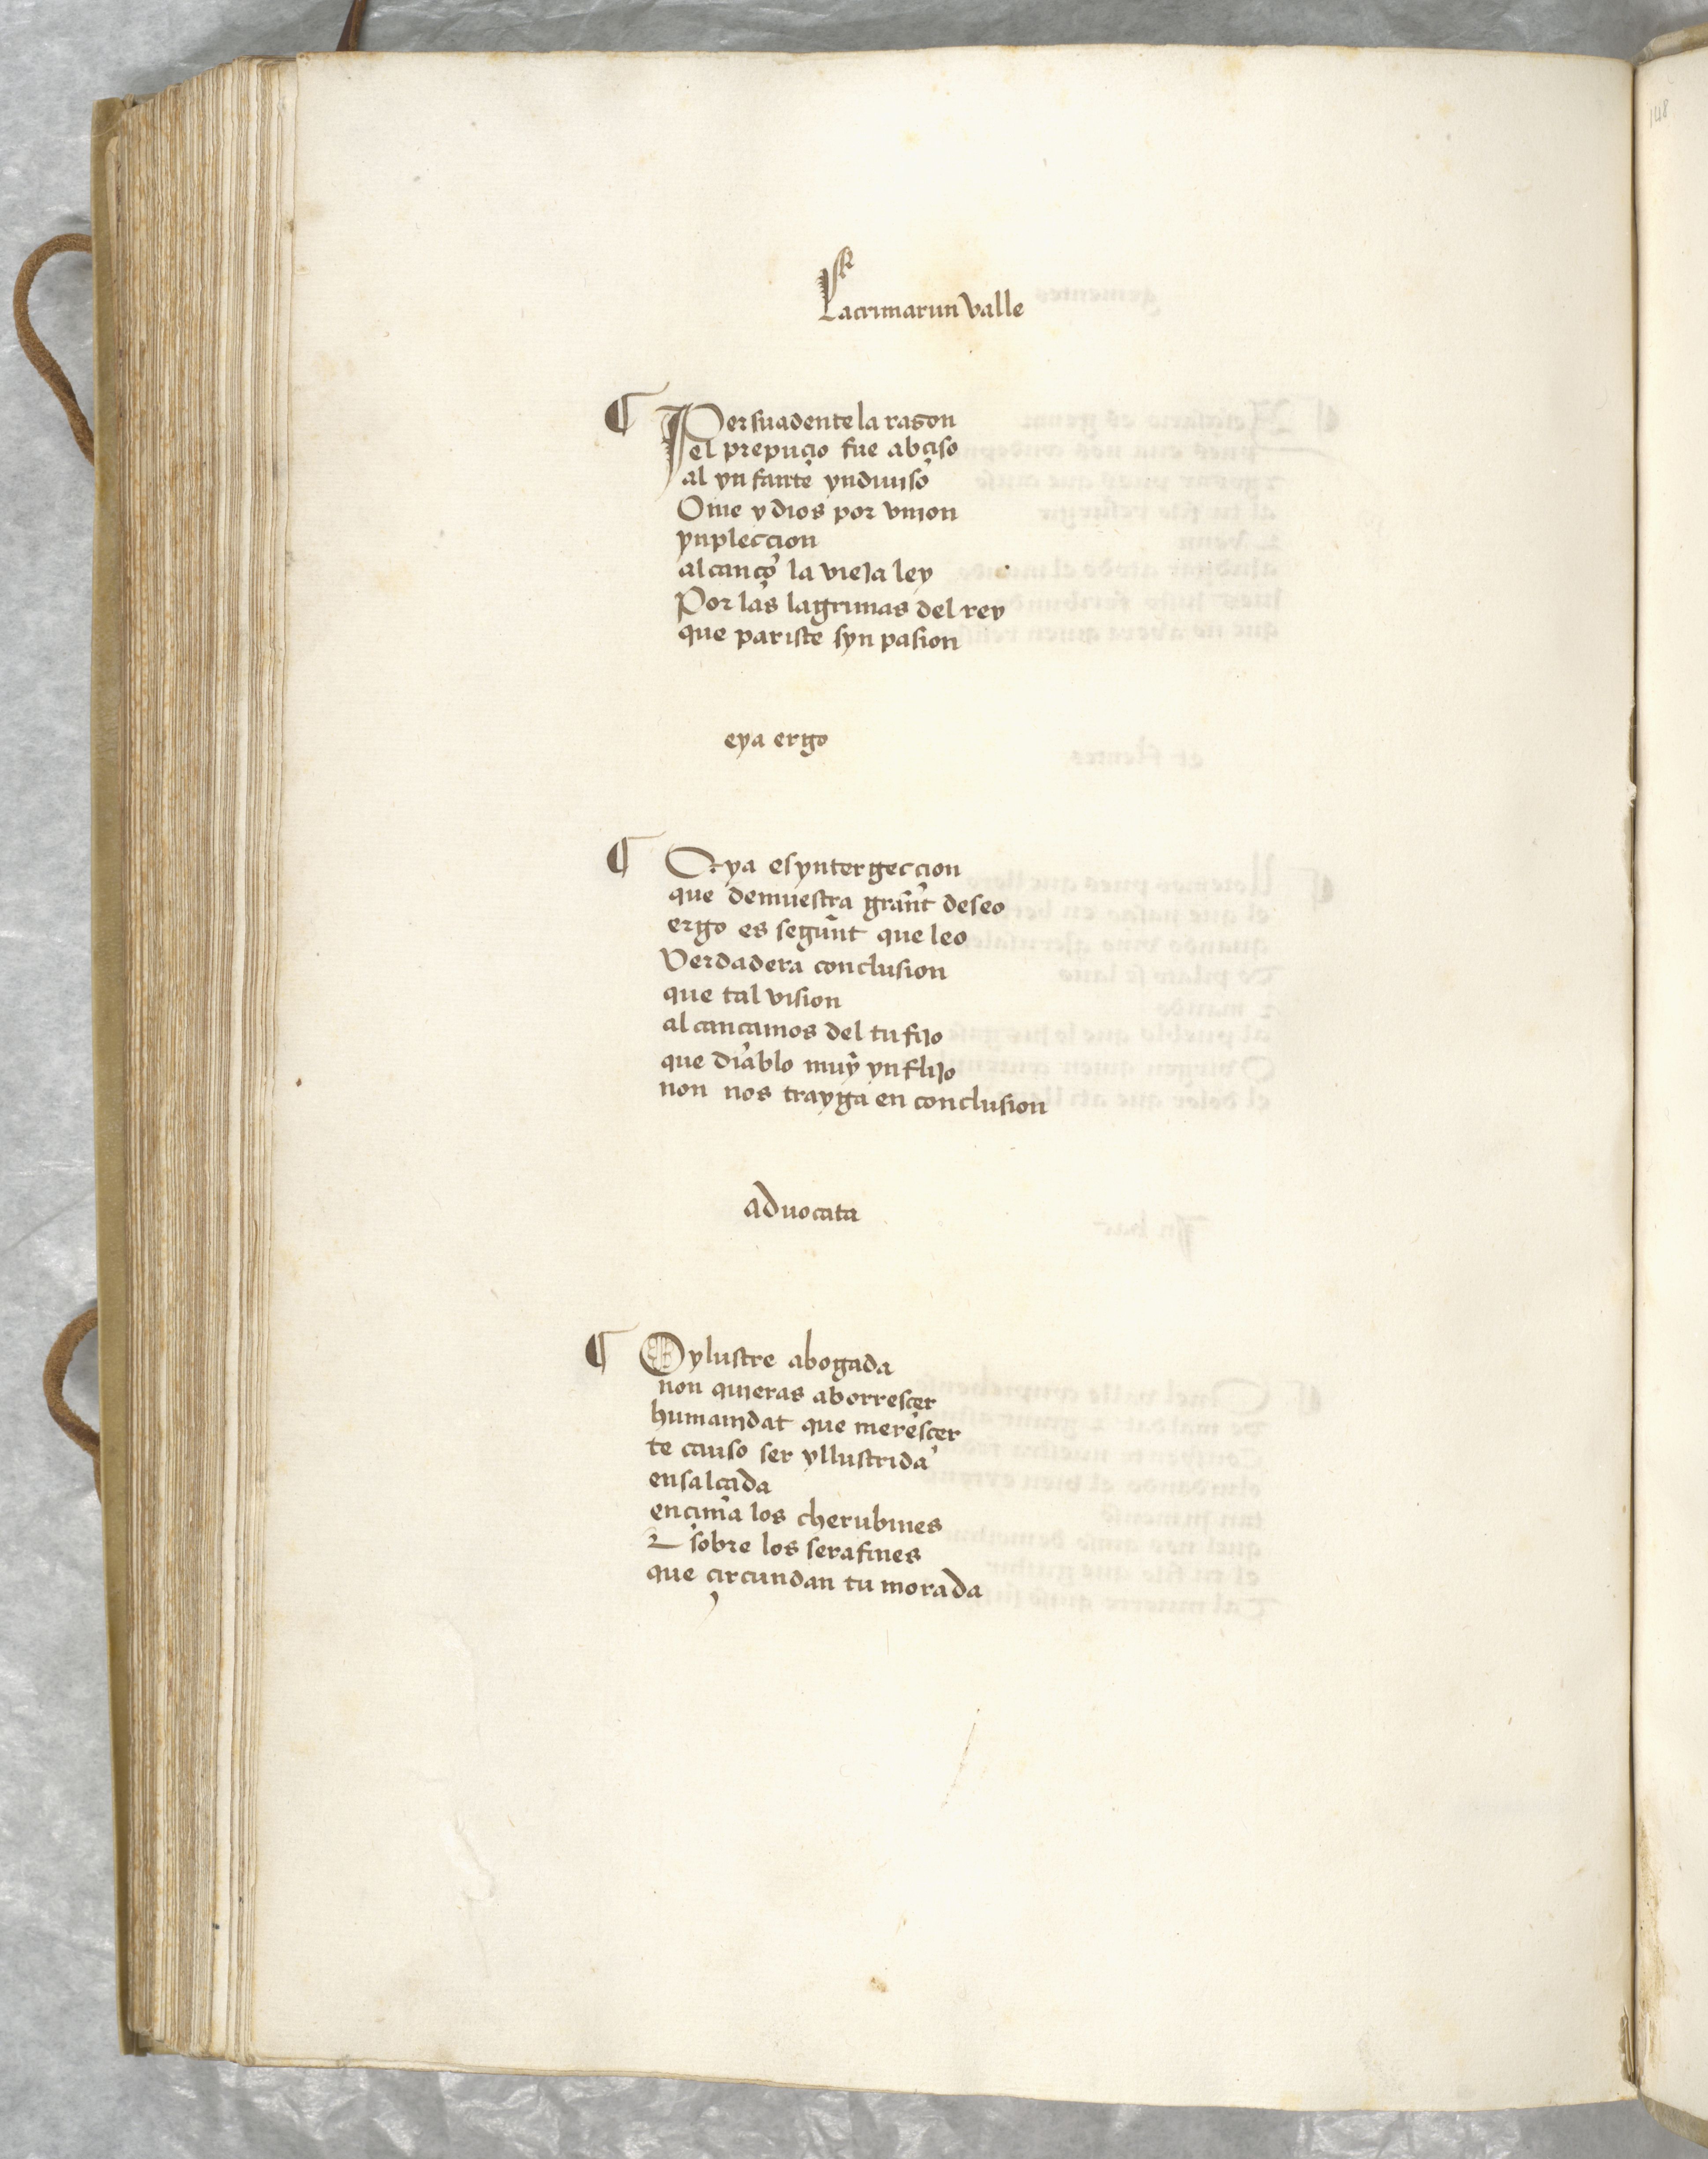 Lacrimarun valle
¶ Persuadente la rason
el prepuçio fue abçiso
al ynfante yndiuiso
Ome y dios por vnion
ynpleccion
alcanço la vieja ley
Por las lagrimas del rey
que pariste syn pasion
eya ergo
¶ Eya es yntergeccion
que demuestra grant deseo
ergo es segunt que leo
Verdadera conclusion
que tal vision
alcancamos del tu fijo
que diablo muy ynflijo
non nos trayga en conclusion
advocata
¶ O ylustre abogada
non quieras aborresçer
humanidat que meresçer
te causo ser yllustrida
ensalçada
ençima los cherubines
⁊ sobre los serafines
que çircundan tu morada
148